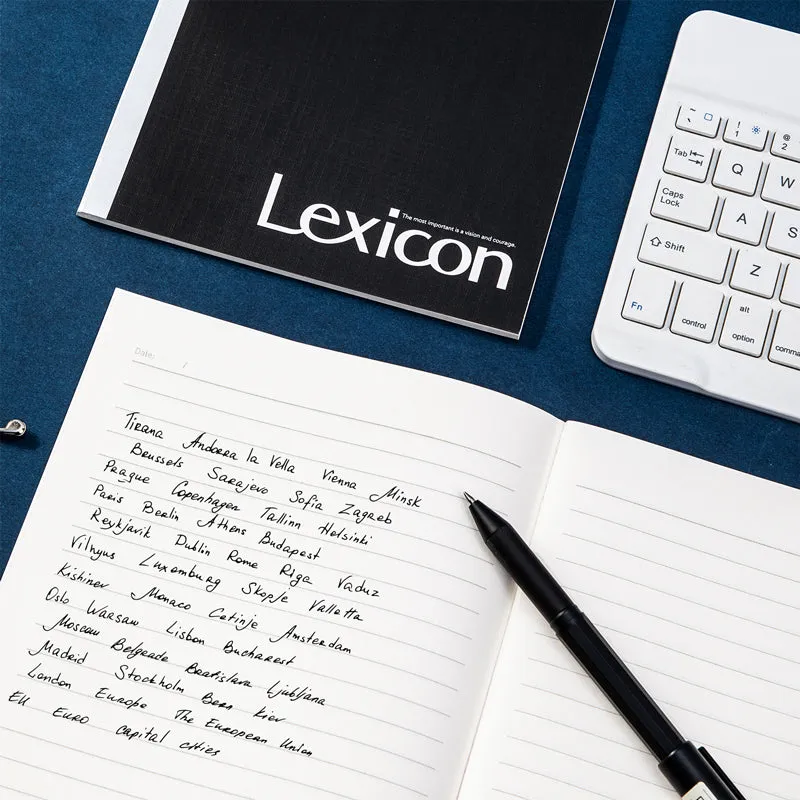 Lexicon
The most important is a vision and courage.
~ `
! 1
@ 2
Tab
Q
W
Caps Lock
A
S
Shift
Z
Fn
control
alt option
comma
Date: /
Tirana Andorra la Vella Vienna Minsk
Brussels Sarajevo Sofia Zagreb
Prague Copenhagen Tallinn Helsinki
Paris Berlin Athens Budapest
Reykjavik Dublin Rome Riga Vaduz
Vilnyus Luxemburg Skopje Valletta
Kishinev Monaco Cetinje Amsterdam
Oslo Warsaw Lisbon Bucharest
Moscow Belgrade Bratislava Ljubljana
Madrid Stockholm Bern Kiev
London Europe The European Union
EU Euro capital cities